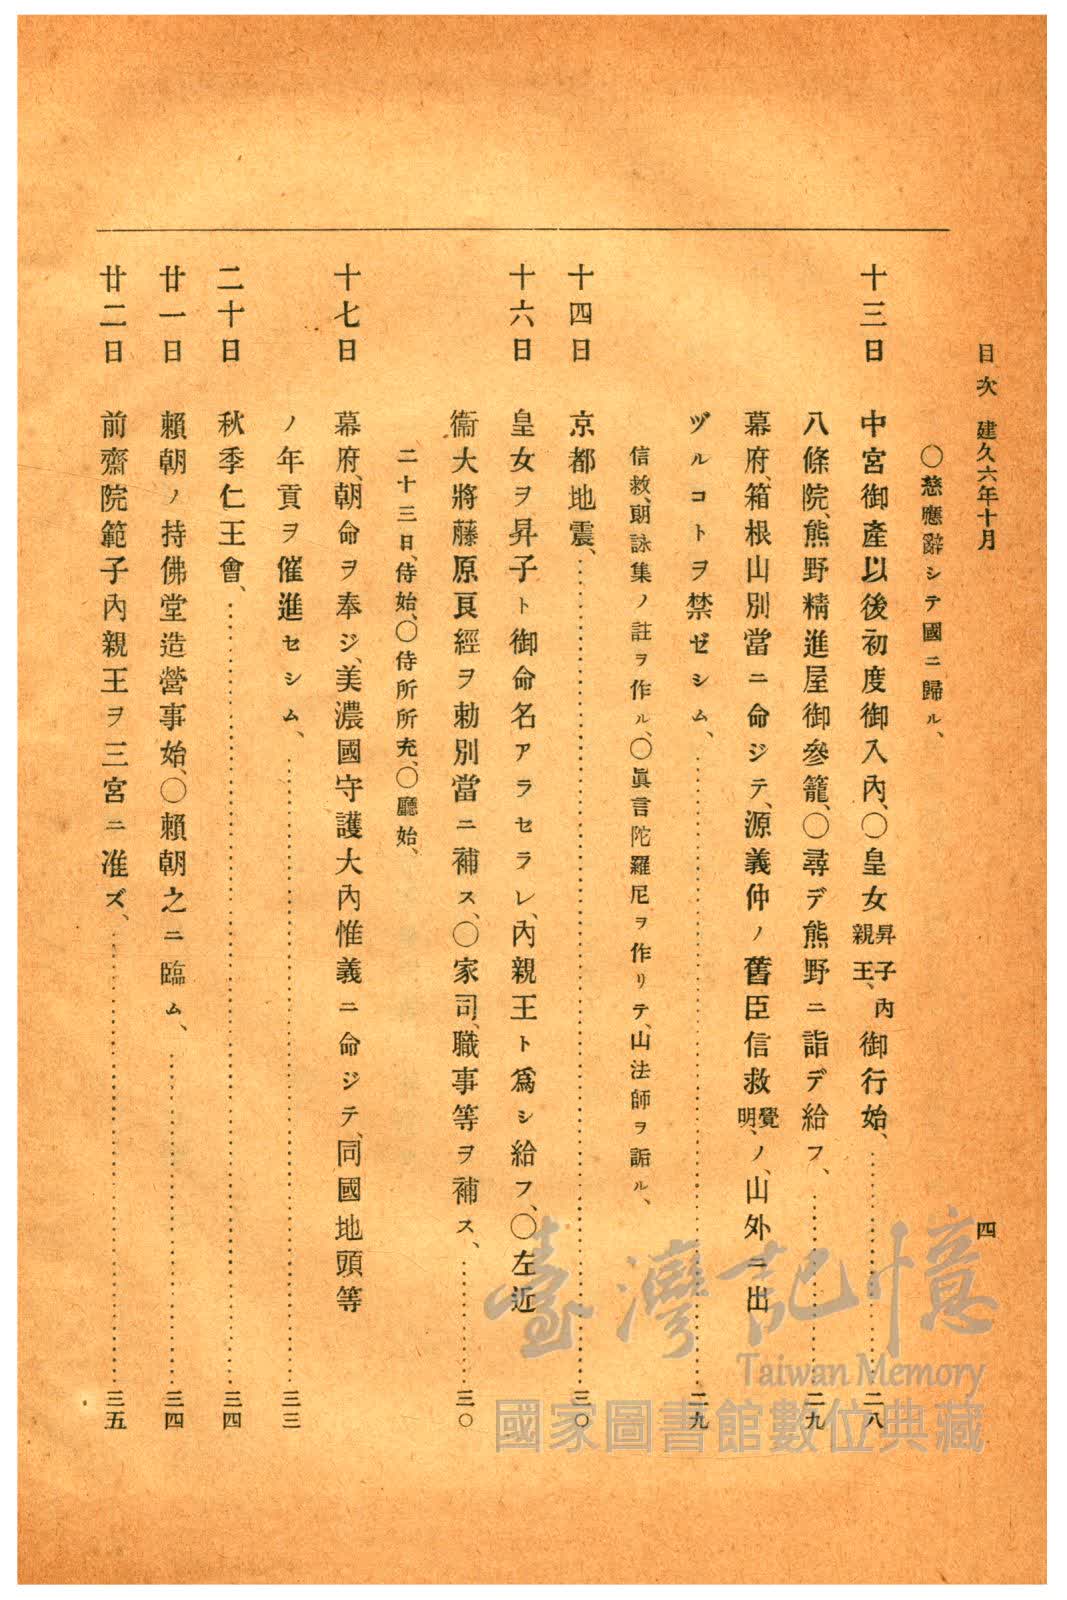 目次 建久六年十月 四
〇慈應辭シテ國ニ歸ル、
十三日 中宮御產以後初度御入內、〇皇女昇子內親王、御行始、 二八
八條院、熊野精進屋御參籠、〇尋デ熊野ニ詣デ給フ、 二九
幕府、箱根山別當ニ命ジテ、源義仲ノ舊臣信救覺明、ノ、山外ニ出
ヅルコトヲ禁ゼシム、 二九
信救、朗詠集ノ註ヲ作ル、〇眞言陀羅尼ヲ作リテ、山法師ヲ詬ル、
十四日 京都地震、 三〇
十六日 皇女ヲ昇子ト御命名アラセラレ、內親王ト爲シ給フ、〇左近
衞大將藤原良經ヲ勅別當ニ補ス、〇家司、職事等ヲ補ス、 三〇
二十三日、侍始、〇侍所所充、〇廳始、
十七日 幕府、朝命ヲ奉ジ、美濃國守護大內惟義ニ命ジテ、同國地頭等
ノ年貢ヲ催進セシム、 三三
二十日 秋季仁王會、 三四
廿一日 賴朝ノ持佛堂造營事始、〇賴朝之ニ臨ム、 三四
廿二日 前齋院範子內親王ヲ三宮ニ准ズ、 三五
臺灣記憶
Taiwan Memory
國家圖書館數位典藏